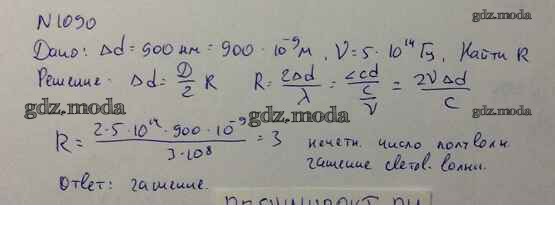 N 1090
gdz.moda
Дано: Δd = 900 нм = 900 · 10⁻⁹ м, ν = 5 · 10¹⁴ Гц, Найти R
Решение: Δd = D/2 R R = 2Δd/λ = 2cd/(c/ν) = 2νΔd/c
gdz.moda gdz.moda
R = 2·5·10¹⁴·900·10⁻⁹/3·10⁸ = 3 нечетн. число полуволн.
гашение светов. волны.
Ответ: гашение.